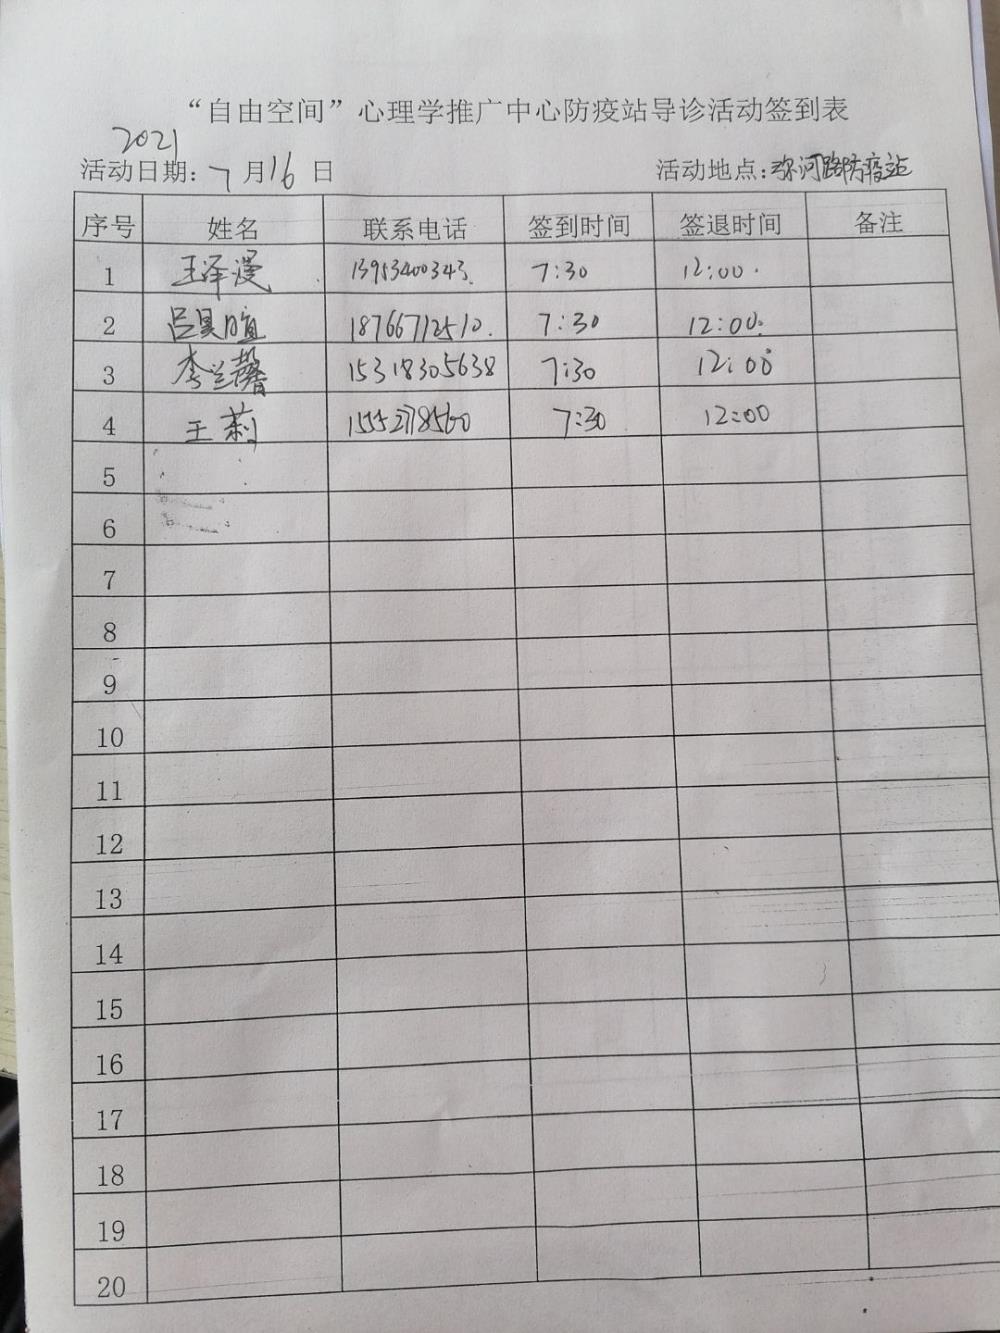 “自由空间”心理学推广中心防疫站导诊活动签到表
2021
活动日期: 7 月 16 日 活动地点:弥河路防疫站
序号 姓名 联系电话 签到时间 签退时间 备注
1 王泽漫 13953400343. 7:30 12:00.
2 吕昊暄 18766712510. 7:30 12:00.
3 李兰馨 15318305638 7:30 12:00
4 王莉 15552718560 7:30 12:00
5
6
7
8
9
10
11
12
13
14
15
16
17
18
19
20